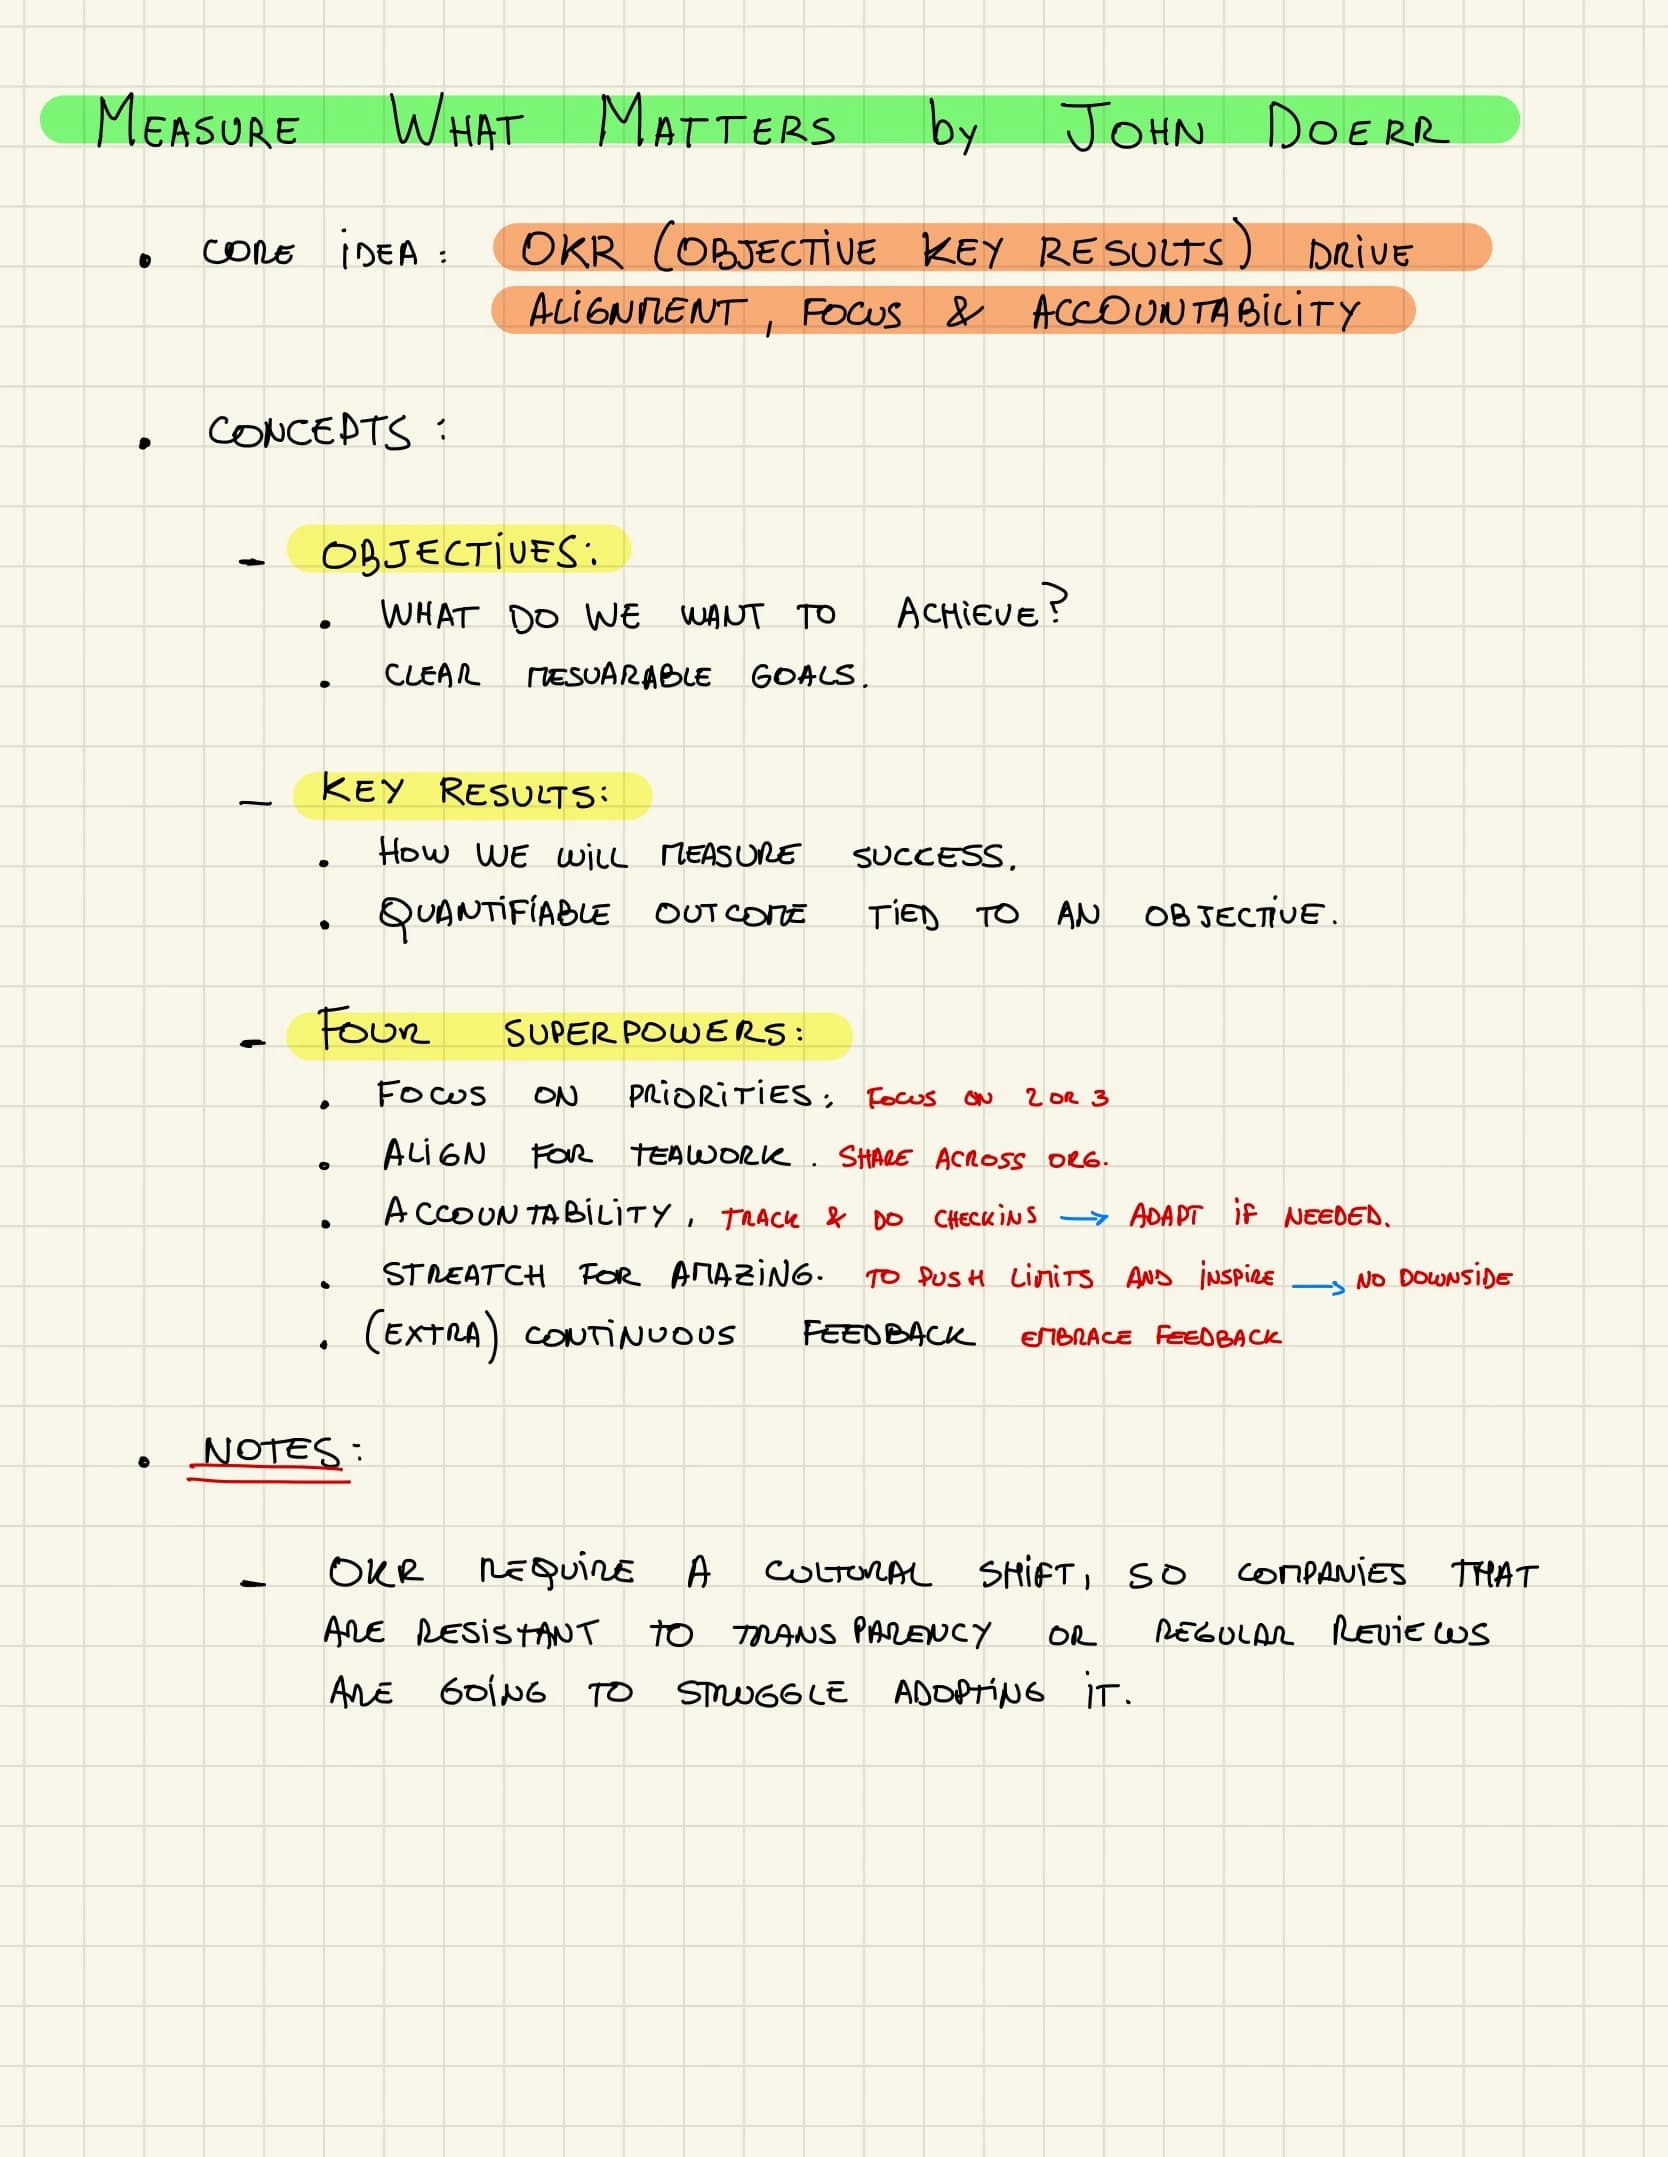 MEASURE WHAT MATTERS by JOHN DOERR
• CORE IDEA: OKR (OBJECTIVE KEY RESULTS) DRIVE
ALIGNMENT, FOCUS & ACCOUNTABILITY
• CONCEPTS:
- OBJECTIVES:
• WHAT DO WE WANT TO ACHIEVE?
• CLEAR MESUARABLE GOALS.
- KEY RESULTS:
• HOW WE WILL MEASURE SUCCESS.
• QUANTIFIABLE OUTCOME TIED TO AN OBJECTIVE.
- FOUR SUPERPOWERS:
• FOCUS ON PRIORITIES: FOCUS ON 2 OR 3
• ALIGN FOR TEAWORK. SHARE ACROSS ORG.
• ACCOUNTABILITY, TRACK & DO CHECKINS → ADAPT IF NEEDED.
• STREATCH FOR AMAZING. TO PUSH LIMITS AND INSPIRE → NO DOWNSIDE
• (EXTRA) CONTINUOUS FEEDBACK EMBRACE FEEDBACK
• NOTES:
- OKR REQUIRE A CULTURAL SHIFT, SO COMPANIES THAT
ARE RESISTANT TO TRANSPARENCY OR REGULAR REVIEWS
ARE GOING TO STRUGGLE ADOPTING IT.